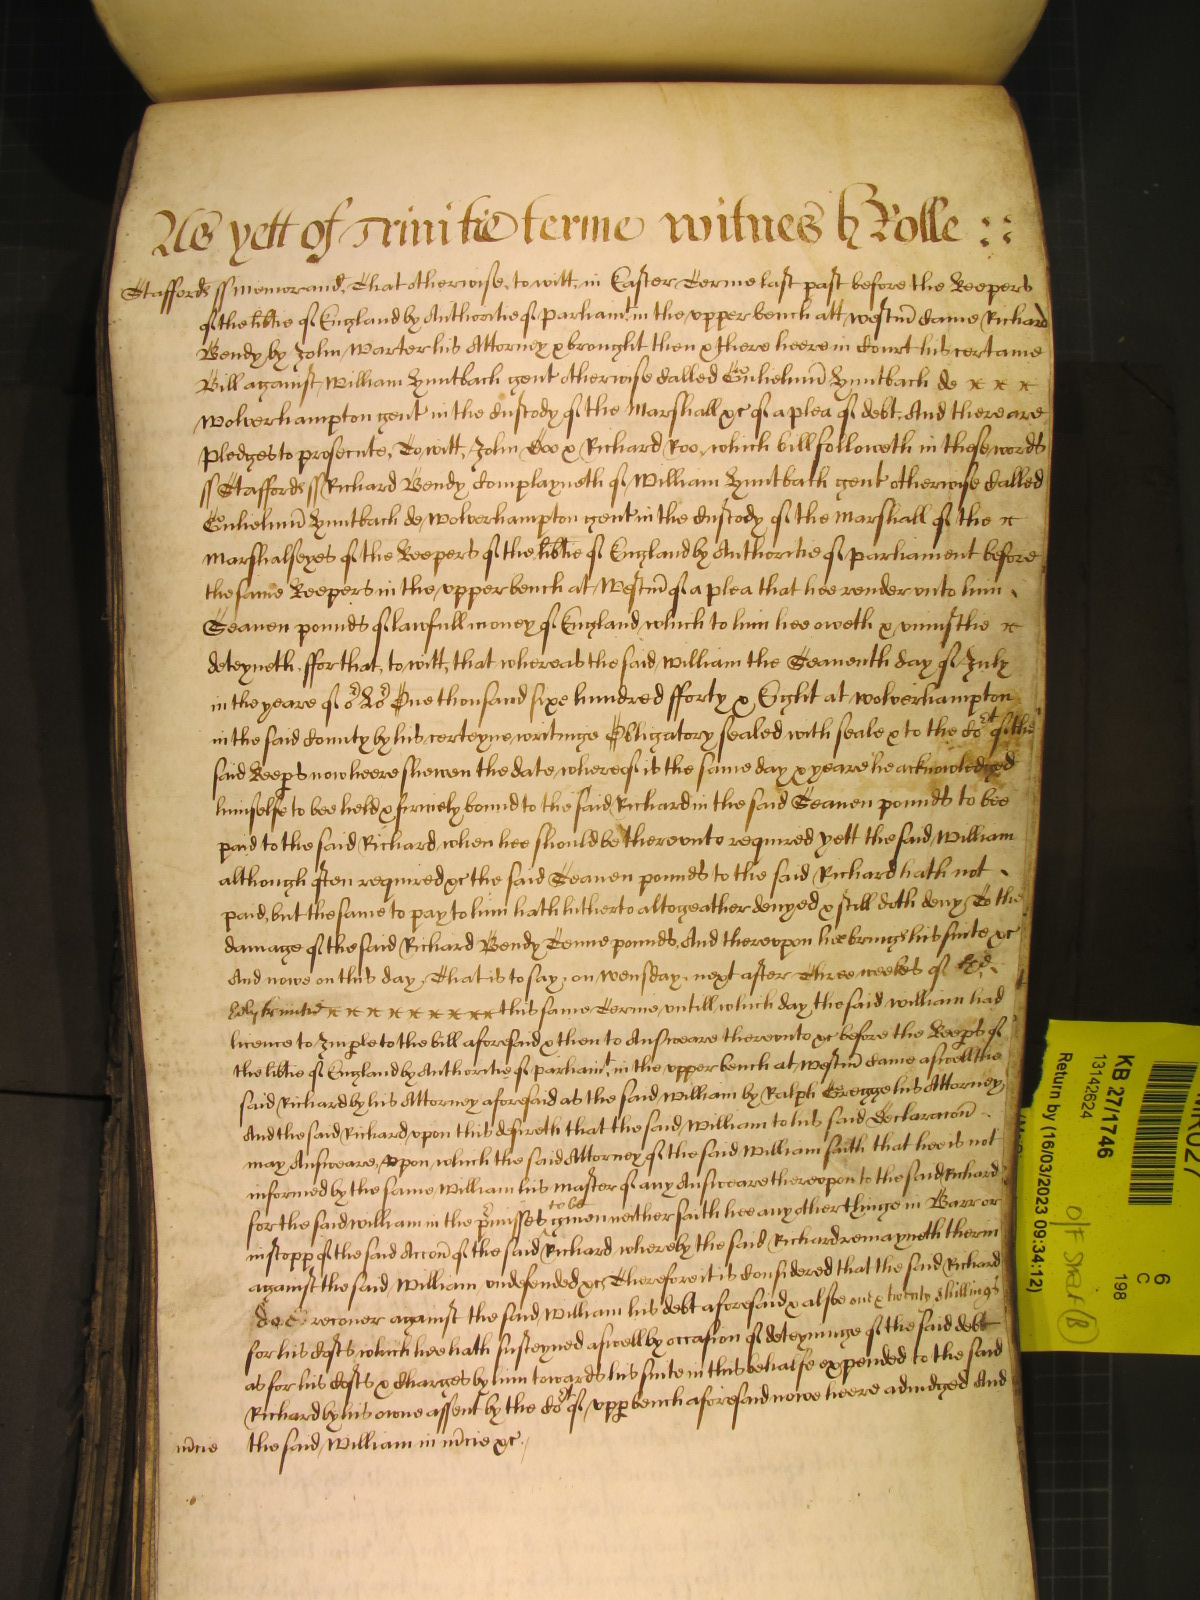 As yett of Trinitie terme witnes H Rolle ::
Staffords ss Memorand. That otherwise, to witt, in Easter Terme last past before the Keepers
of the libtie of England by Authoritie of Parliamt. in the upper bench att Westmr Came Richard
Bendy by John Warter his Attorney & brought then & there heere in Court his certaine
Bill against William Huntbach gent otherwise Called Gulielmu Huntbach de
Wolverhampton gent in the Custody of the Marshall &c of a plea of debt, And there are
Pledges to prosecute, To witt, John Doo & Richard Roo, which bill followeth in these words
ss Staffords ss Richard Bendy Complayneth of William Huntbach gent otherwise Called
Gulielmu Huntbach de Wolverhampton gent in the Custody of the Marshall of the
Marshalseyes of the Keepers of the libtie of England by Authoritie of Parliament before
the same Keepers in the upper bench at Westmr of a plea that hee render unto him
Seauen pounds of lawfull money of England which to him hee oweth & uniustlie
deteyneth. ffor that, to witt, that whereas the said William the Seauenth day of July
in the yeare of or Lord One thousand sixe hundred fforty & Eight at Wolverhampton
in the said County by his certeyne writinge Obligatory sealed with seale & to the Cort of the
said Keeps now heere shewen the date whereof is the same day & yeare he acknowledged
himselfe to bee held & firmely bound to the said Richard in the said Seauen pounds to bee
paid to the said Richard when hee should be thereunto required yett the said William
although often required &c the said Seauen pounds to the said Richard hath not
paid, but the same to pay to him hath hitherto altogeather denyed & still doth deny, To the
damage of the said Richard Bendy Tenne pounds, And thereupon hee brings his suite &c
And nowe on this day, That is to say, on Wensday next after Three weekes of
holy trinitie this same Terme untill which day the said William had
licence to Imple to the bill aforesaid & then to Answeare thereunto &c before the Keeps of
the libtie of England by Authoritie of Parliamt. in the upper bench at Westmr Came aswell the
said Richard by his Attorney aforesaid as the said William by Ralph Gregge his Attorney,
And the said Richard upon this desireth that the said William to his said Declaracon
may Answeare, Upon which the said Attorney of the said William saith that hee is not
informed by the same William his Master of any Answeare thereupon to the said Richard
to be
for the said William in the pmisses given neither saith hee any other thinge in Barr or
in stopp of the said Accon of the said Richard whereby the said Richard remayneth therin
against the said William undefended &c, Therefore it is Considered that the said Richard
doe recouer against the said William his debt aforesaid & alsoe one & twenty shillings
for his Costs which hee hath susteyned aswell by occasion of deteyninge of the said debt
as for his Costs & Charges by him towards his suite in this behalfe expended to the said
Richard by his owne assent by the Cort of upp bench aforesaid nowe heere adiudged And
mcie the said William in mcie &c.
KB 27/1746
13142624
Return by (16/03/2023 09:34:12)
6
C
198
O/F Shelf (B)